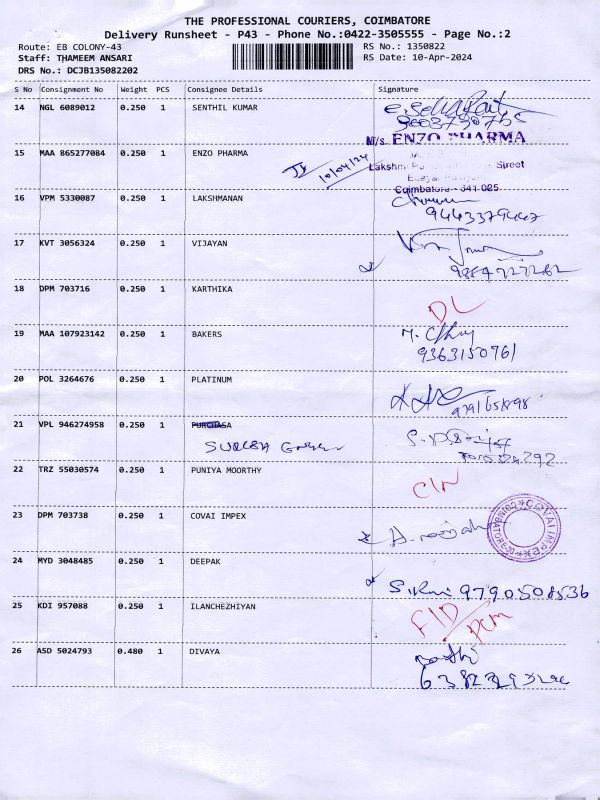 THE PROFESSIONAL COURIERS, COIMBATORE
Delivery Runsheet - P43 - Phone No.:0422-3505555 - Page No.:2
Route: EB COLONY-43 RS No.: 1350822
Staff: THAMEEM ANSARI RS Date: 10-Apr-2024
DRS No.: DCJB135082202
S No Consignment No Weight PCS Consignee Details Signature
14 NGL 6089012 0.250 1 SENTHIL KUMAR
M/s. ENZO PHARMA
15 MAA 865277084 0.250 1 ENZO PHARMA
10/04/24 Street
Coimbatore - 641 025.
16 VPM 5330087 0.250 1 LAKSHMANAN
9443379447
17 KVT 3056324 0.250 1 VIJAYAN
18 DPM 703716 0.250 1 KARTHIKA
DL
19 MAA 107923142 0.250 1 BAKERS
9363150761
20 POL 3264676 0.250 1 PLATINUM
21 VPL 946274958 0.250 1
22 TRZ 55030574 0.250 1 PUNIYA MOORTHY
CIN
23 DPM 703738 0.250 1 COVAI IMPEX
COVAI IMPEX
COIMBATORE
24 MYD 3048485 0.250 1 DEEPAK
9790508536
25 KDI 957088 0.250 1 ILANCHEZHIYAN
26 ASD 5024793 0.480 1 DIVAYA